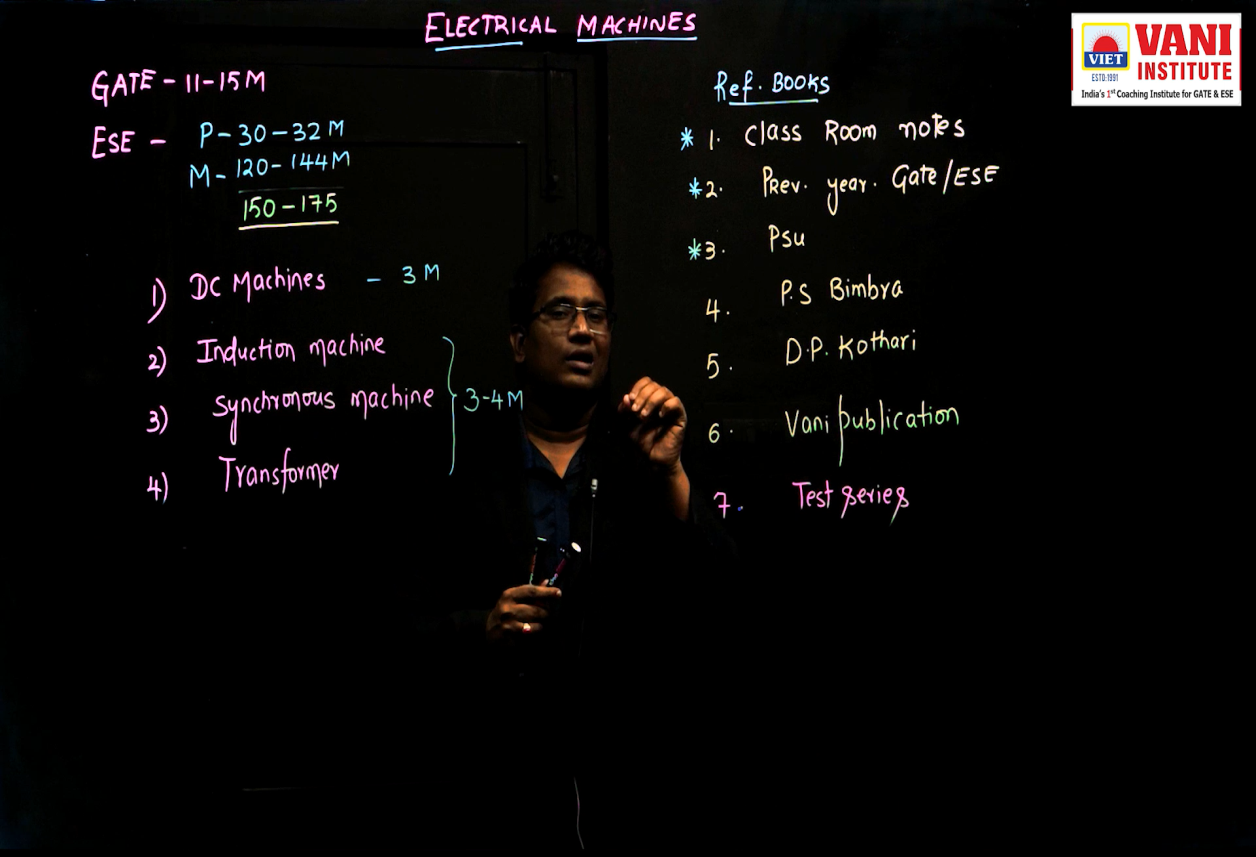 ELECTRICAL MACHINES
VANI
INSTITUTE
VIET
ESTD:1991
India's 1st Coaching Institute for GATE & ESE
GATE - 11-15M
ESE - P-30-32M
M-120-144M
150-175
1) DC Machines - 3M
2) Induction machine
3) Synchronous machine
3-4M
4) Transformer
Ref. BOOKS
* 1. Class Room notes
* 2. Prev. year. Gate/ESE
* 3. Psu
4. P.S Bimbra
5. D.P. Kothari
6. Vani publication
7. Test series